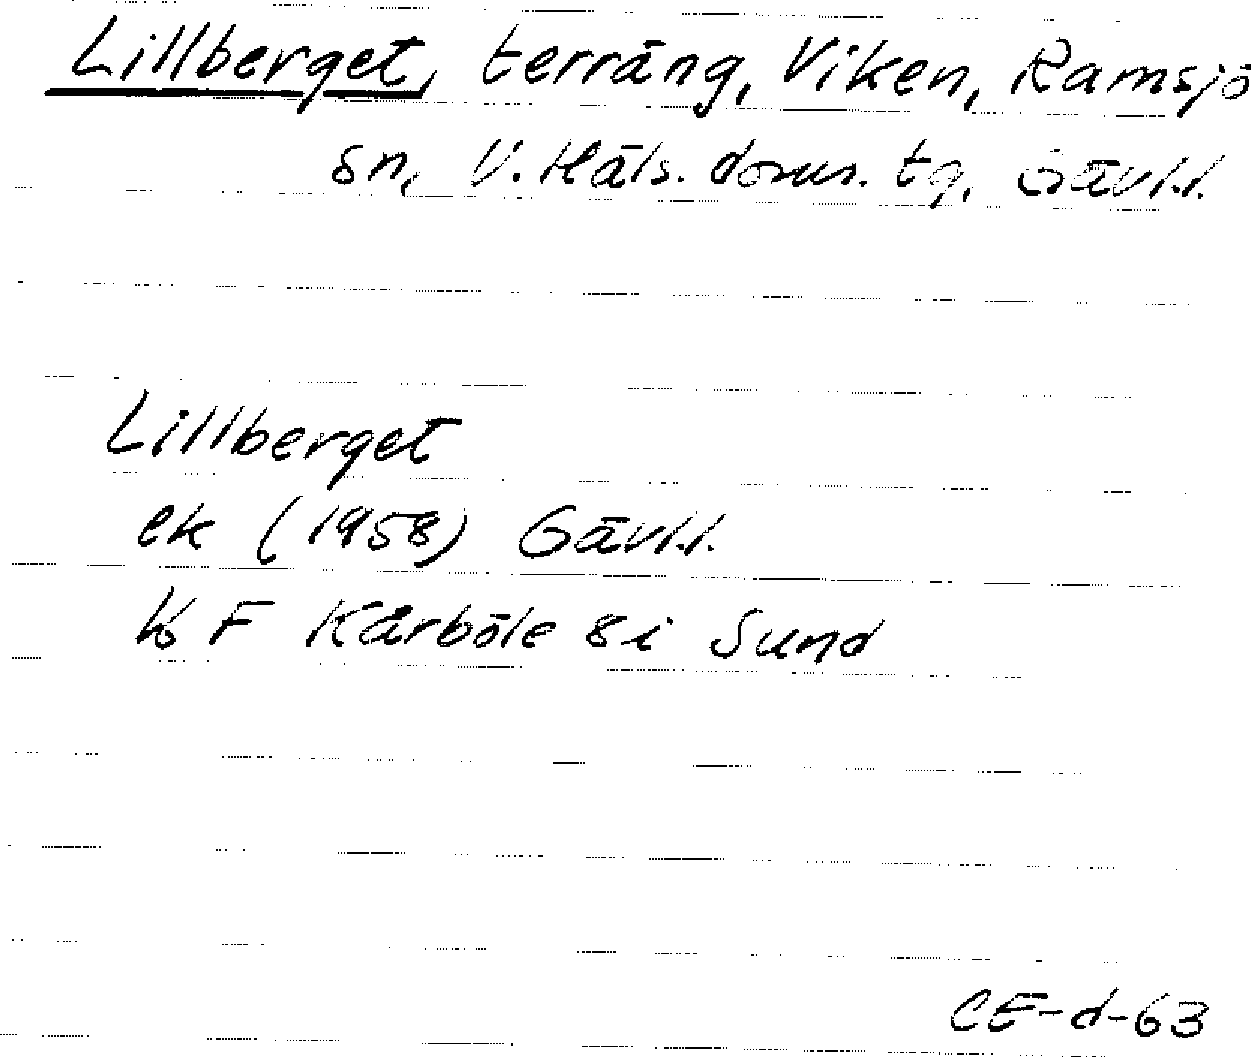 Lillberget, terräng, Viken, Ramsjö
sn, V. Häls. doms. tg, Gävl.l.
Lillberget
ek (1958) Gävl.l.
F Kårböle 8i Sund
CE-d-63